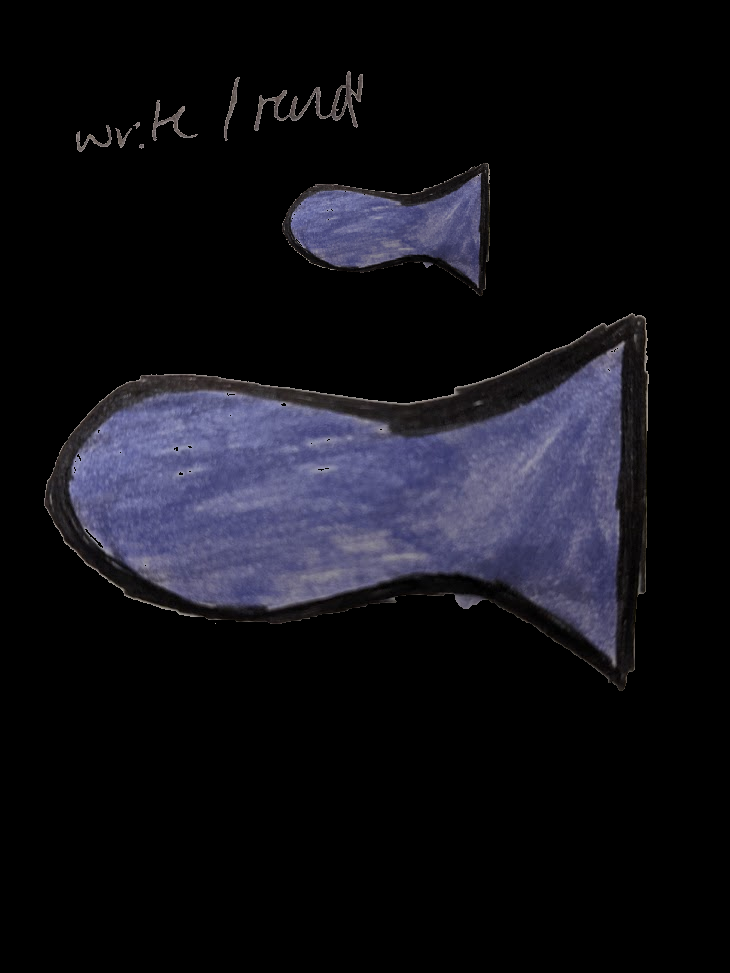 write / read